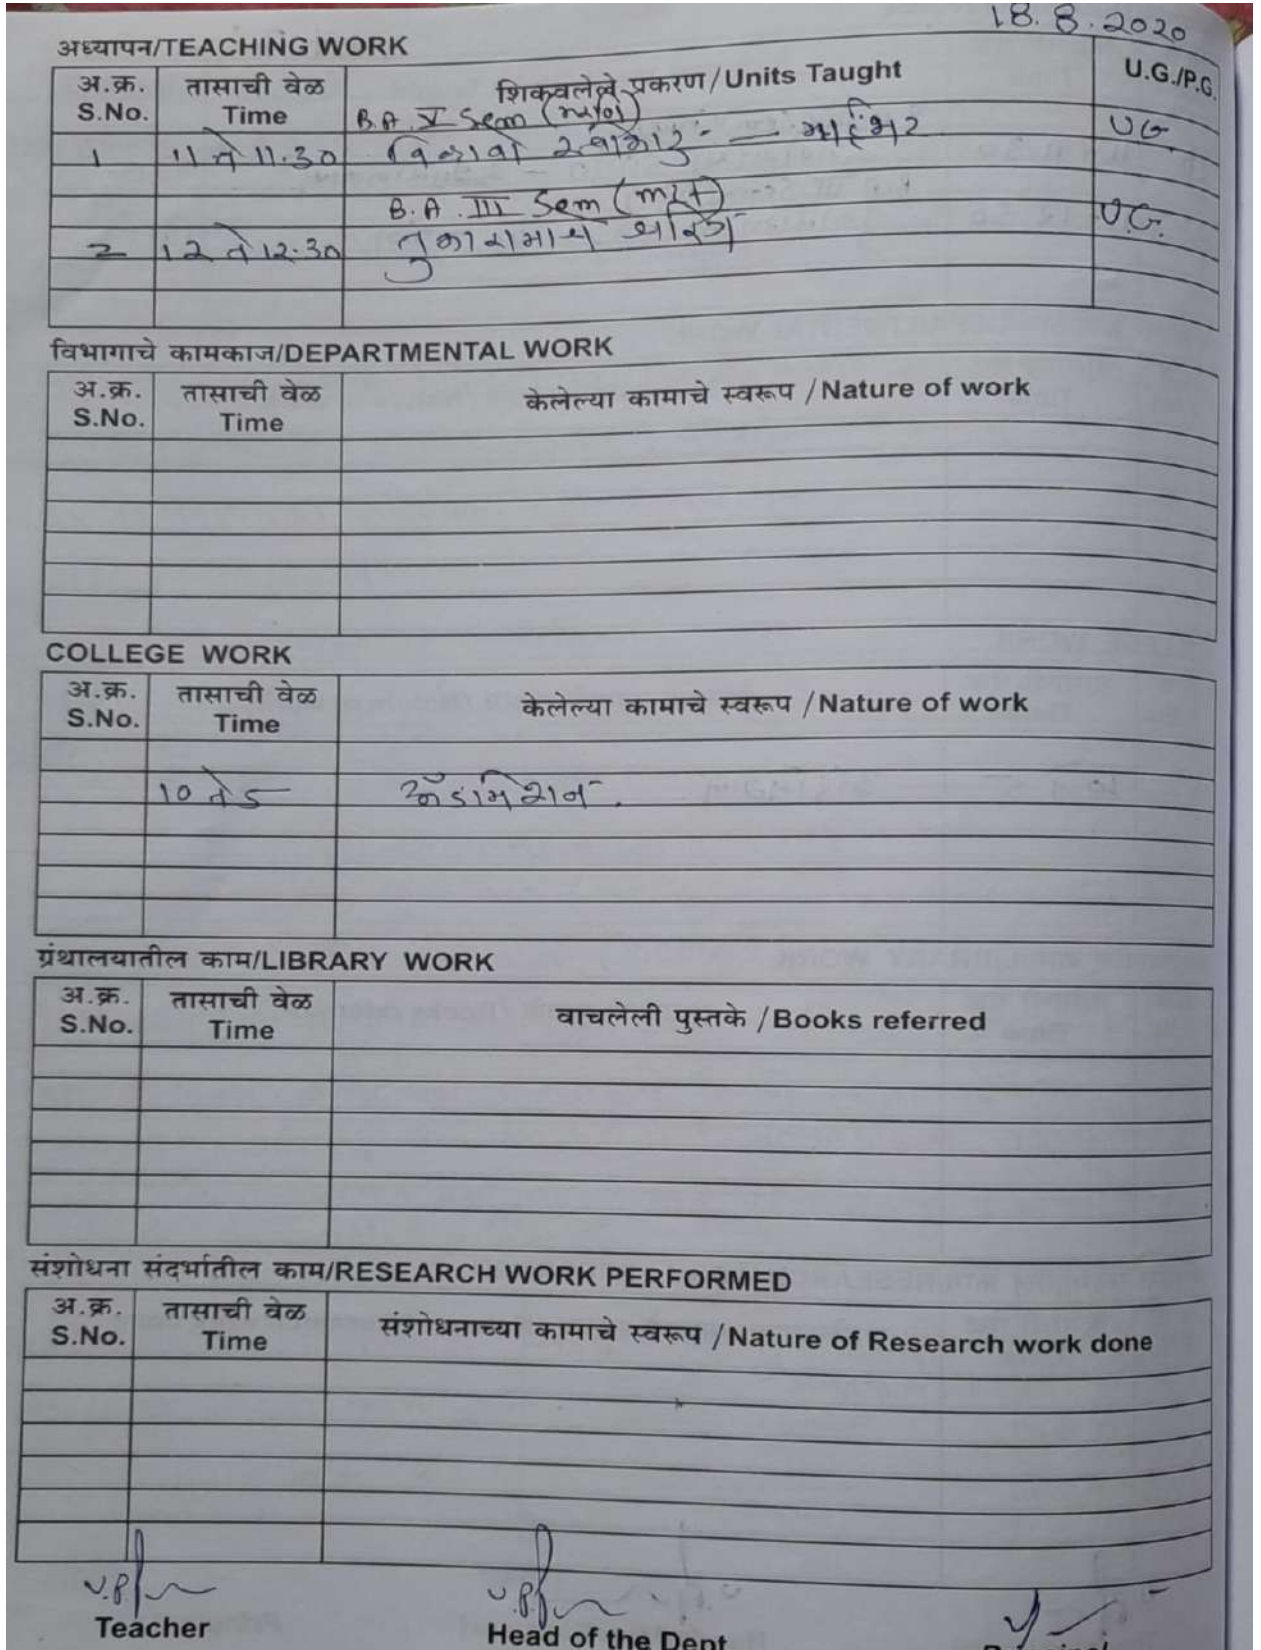 18.8.2020
अध्यापन/TEACHING WORK
अ.क्र. S.No. तासाची वेळ Time शिकवलेले प्रकरण/Units Taught U.G./P.G.
B.A. V Sem
1 11 ते 11.30 UG.
B.A. III Sem
2 12 ते 12.30 तुकारामाचे U.G.
विभागाचे कामकाज/DEPARTMENTAL WORK
अ.क्र. S.No. तासाची वेळ Time केलेल्या कामाचे स्वरूप /Nature of work
COLLEGE WORK
अ.क्र. S.No. तासाची वेळ Time केलेल्या कामाचे स्वरूप /Nature of work
10 ते 5 ॲडमिशन.
ग्रंथालयातील काम/LIBRARY WORK
अ.क्र. S.No. तासाची वेळ Time वाचलेली पुस्तके /Books referred
संशोधना संदर्भातील काम/RESEARCH WORK PERFORMED
अ.क्र. S.No. तासाची वेळ Time संशोधनाच्या कामाचे स्वरूप /Nature of Research work done
Teacher Head of the Dept